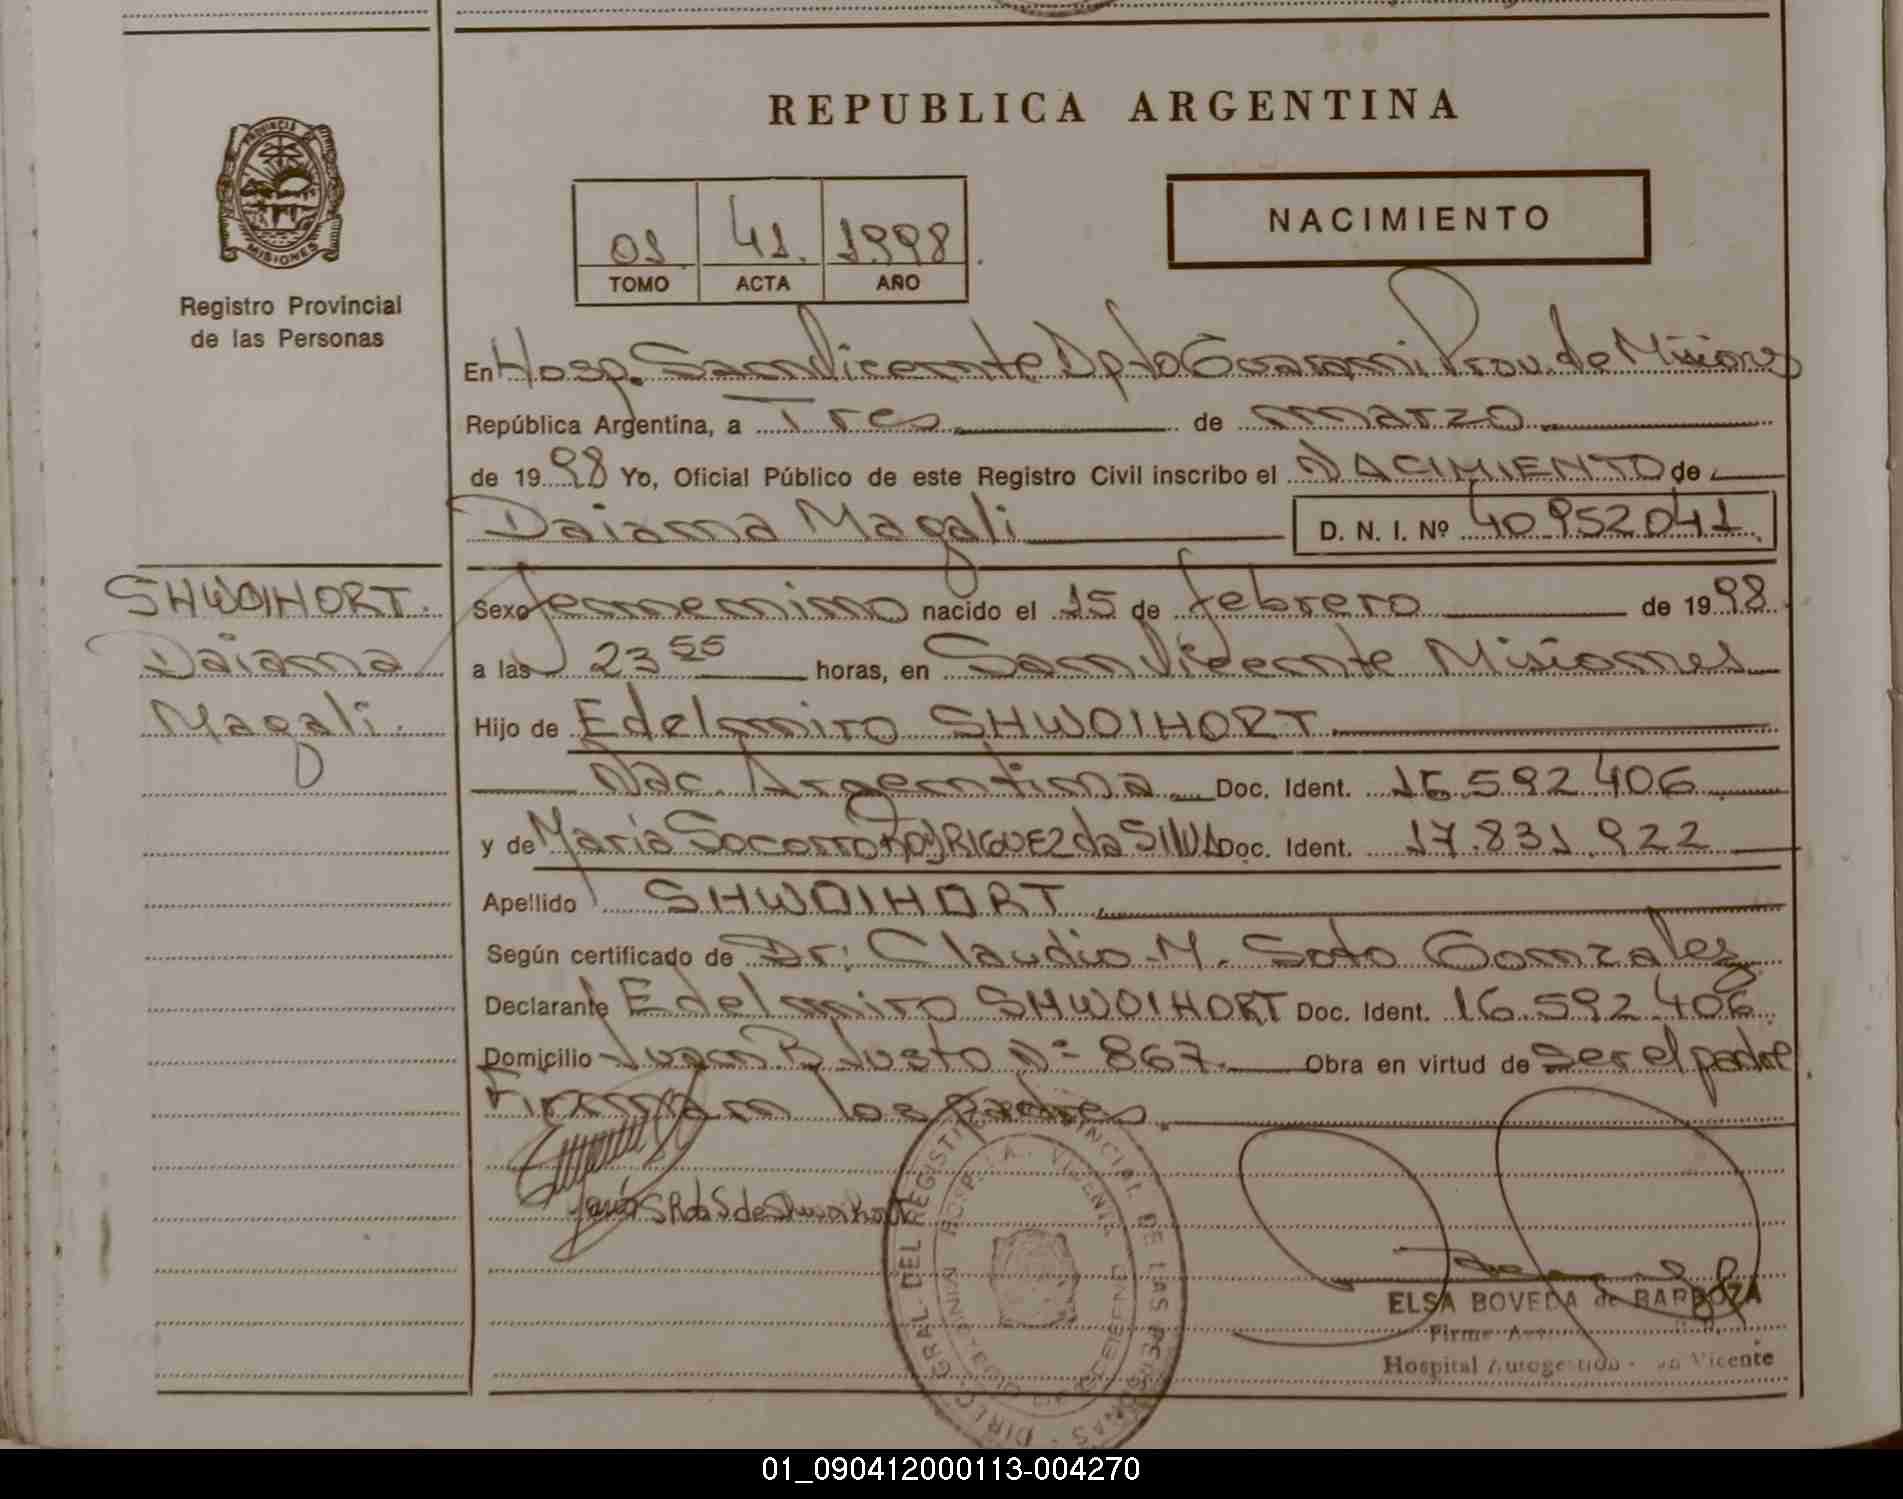 REPUBLICA ARGENTINA
PROVINCIA DE
MISIONES
Registro Provincial
de las Personas
01 41. 1998
TOMO ACTA AÑO
NACIMIENTO
En Hosp. San Vicente Dpto Guarani Prov. de Misiones
República Argentina, a Tres de marzo
de 1998 Yo, Oficial Público de este Registro Civil inscribo el NACIMIENTO de
Daiana Magali D. N. I. Nº 40.952.041
SHWOIHORT.
Daiana
Magali.
Sexo femenino nacido el 15 de febrero de 1998
a las 23 55 horas, en San Vicente Misiones
Hijo de Edelmiro SHWOIHORT
Nac. Argentina Doc. Ident. 16.592.406
y de Maria Socorro RODRIGUEZ da SILVA Doc. Ident. 17.831.922
Apellido SHWOIHORT
Según certificado de Dr: Claudio M. Soto Gonzalez
Declarante Edelmiro SHWOIHORT Doc. Ident. 16.592.406
Domicilio Juan B Justo Nº 867 Obra en virtud de ser el padre
Firman los padres.
ELSA BOVEDA de BARBOZA
Hospital Autogestión - Vicente
01_090412000113-004270